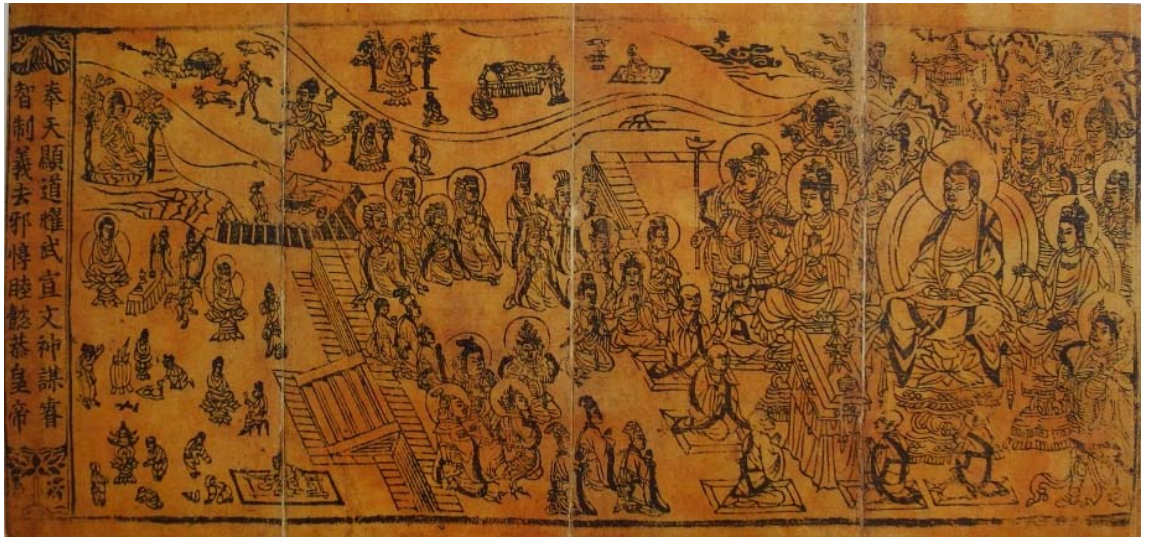 奉天顯道耀武宣文神謀睿
智制義去邪惇睦懿恭皇帝